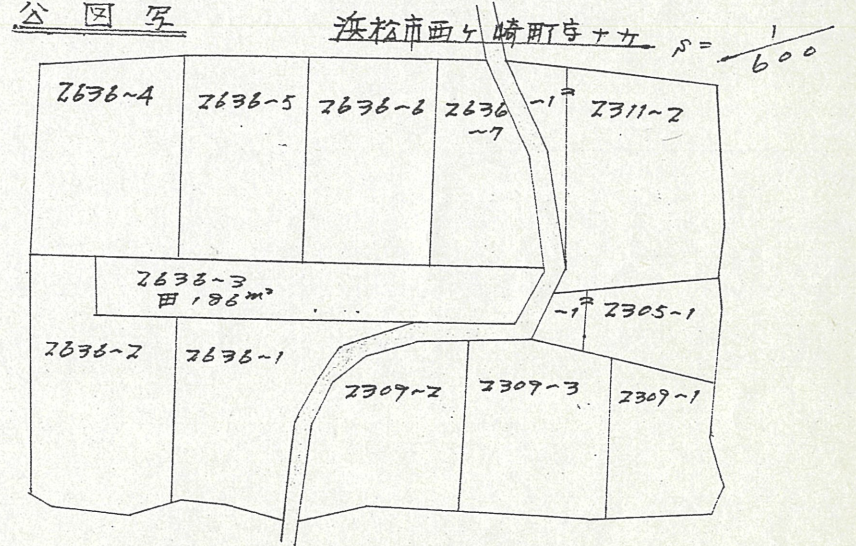 公図写
浜松市西ヶ崎町字十ヶ S=1/600
2636~4
2636~5
2636~6
2636
~7
~1
2311~2
2636~3
田 186m²
~1
2305~1
2636~2
2636~1
2309~2
2309~3
2309~1